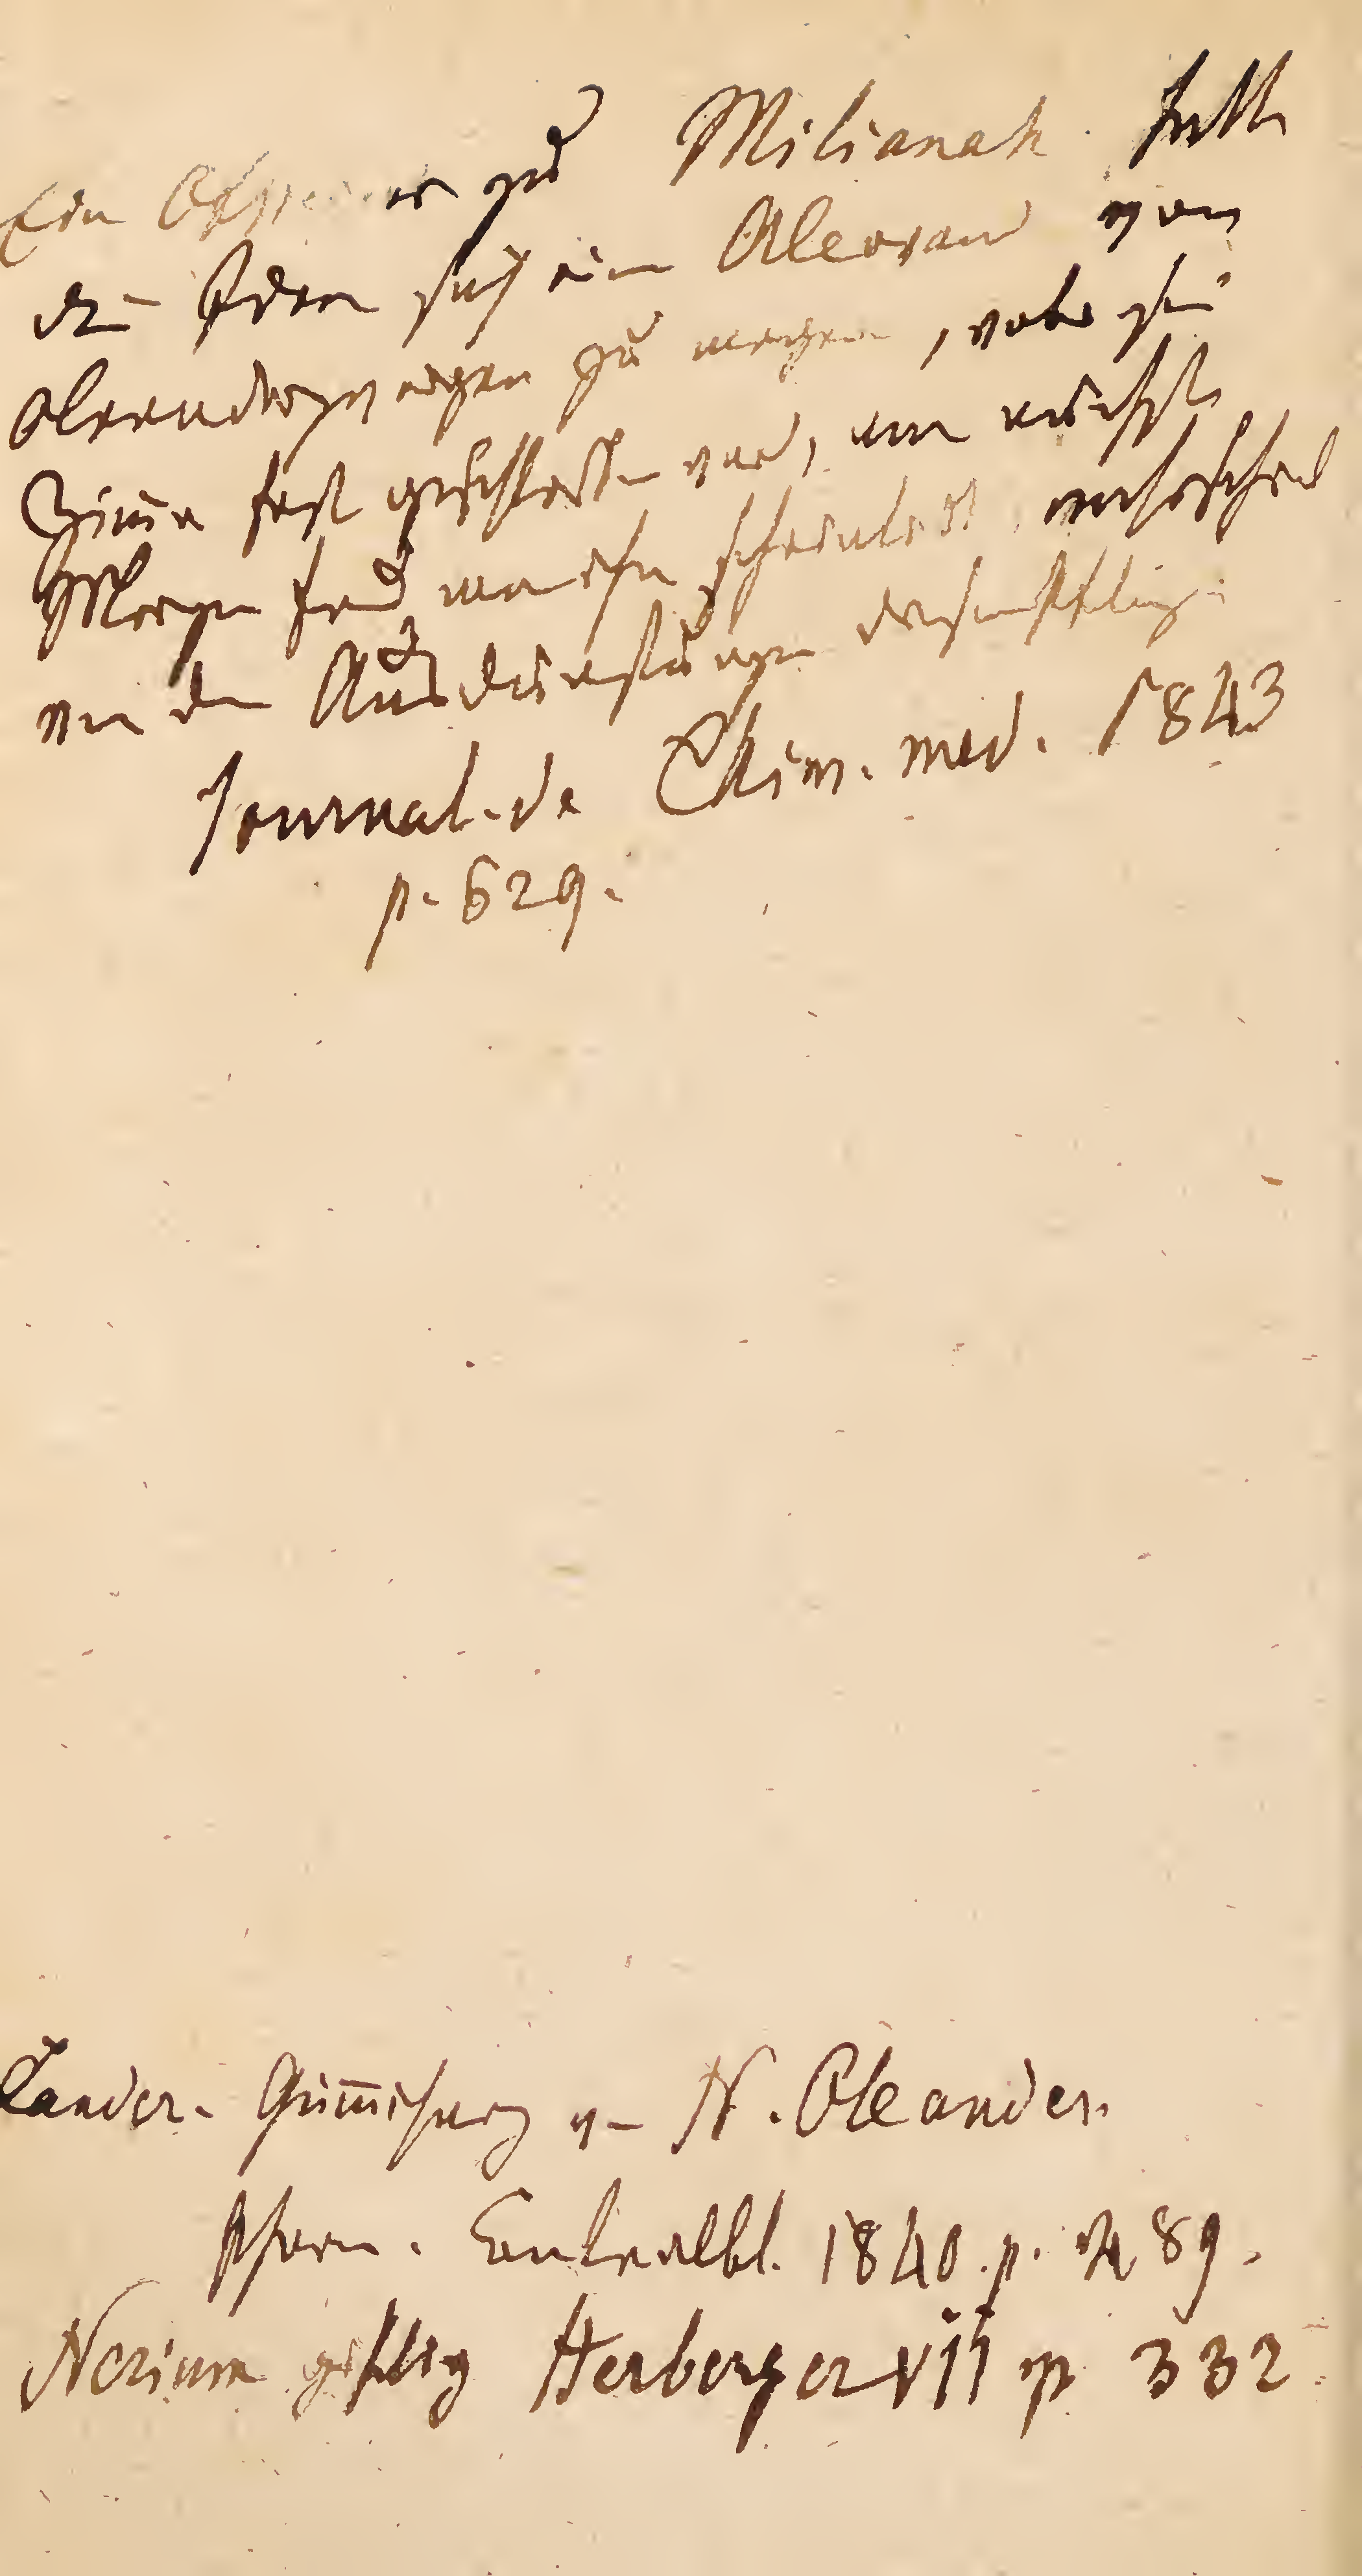 Ein Officier zu Milianah hatte
die Idee sich ein Alcovand von
Oleanderzweigen zu machen, wobei sein
Zimmer fest geschlossen war, am nächsten
Morgen fand man ihn scheintodt,
von den Ausdünstungen
Journal. de Chim. med. 1843
p. 629.
Lander. Gummiharz v. N. Oleander.
Pharm. Centralbl. 1840. p. 89.
Nerium giftig Herberger VII p 332